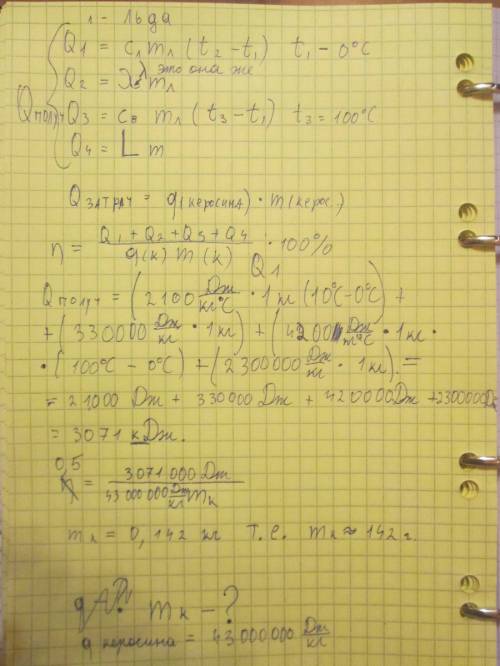 л - льда
Q1 = cл mл (t2 - t1)  t1 - 0°C
Q2 = λ mл  λ это она же
Qполуч Q3 = cв mл (t3 - t1)  t3 = 100°C
Q4 = L m
Qзатрач = q(керосина) · m(керос.)
η = (Q1 + Q2 + Q3 + Q4) / (q(к) m(к)) · 100%
Q1
Qполуч = (2100 Дж/кг°C · 1 кг (10°C - 0°C)) +
+ (330000 Дж/кг · 1 кг) + (4200 Дж/кг°C · 1 кг ·
· (100°C - 0°C) + (2300000 Дж/кг · 1 кг) =
= 21000 Дж + 330000 Дж + 420000 Дж + 2300000 Дж
= 3071 кДж.
0,5 = 3071000 Дж / 43000000 Дж/кг mк
mк = 0,142 кг  т.е. mк ≈ 142 г.
mк - ?
q керосина = 43000000 Дж/кг